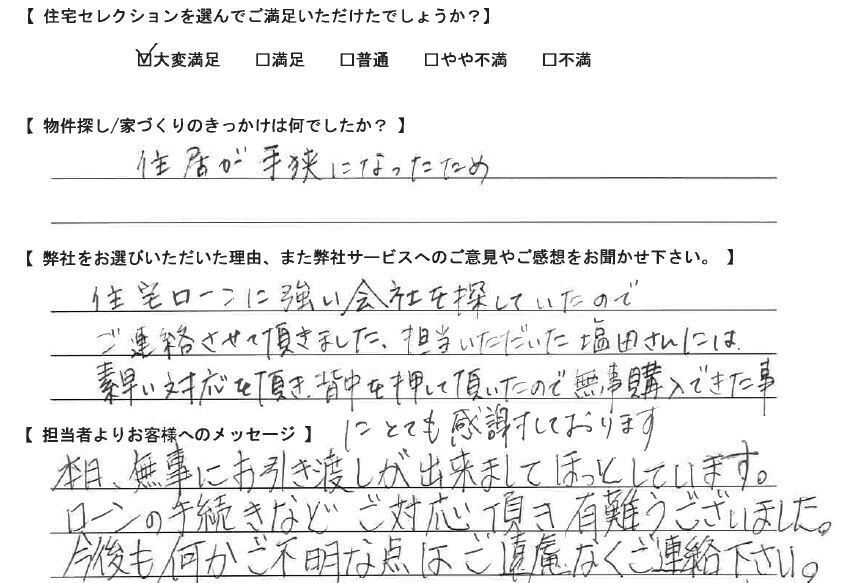 【 住宅セレクションを選んでご満足いただけたでしょうか？】
☑大変満足 □満足 □普通 □やや不満 □不満
【 物件探し/家づくりのきっかけは何でしたか？ 】
住居が手狭になったため
【 弊社をお選びいただいた理由、また弊社サービスへのご意見やご感想をお聞かせ下さい。 】
住宅ローンに強い会社を探していたので
ご連絡させて頂きました、担当いただいた塩田さんには
素早い対応を頂き、背中を押して頂いたので無事購入できた事
にとても感謝しております
【 担当者よりお客様へのメッセージ 】
本日、無事にお引き渡しが出来ましてほっとしています。
ローンの手続きなどご対応頂き有難うございました。
今後も何かご不明な点はご遠慮なくご連絡下さい。